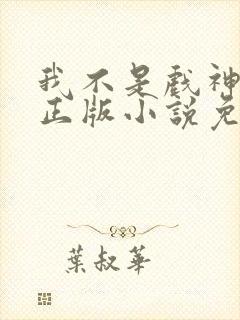 我不是戲神
正版小說免
葉叔華